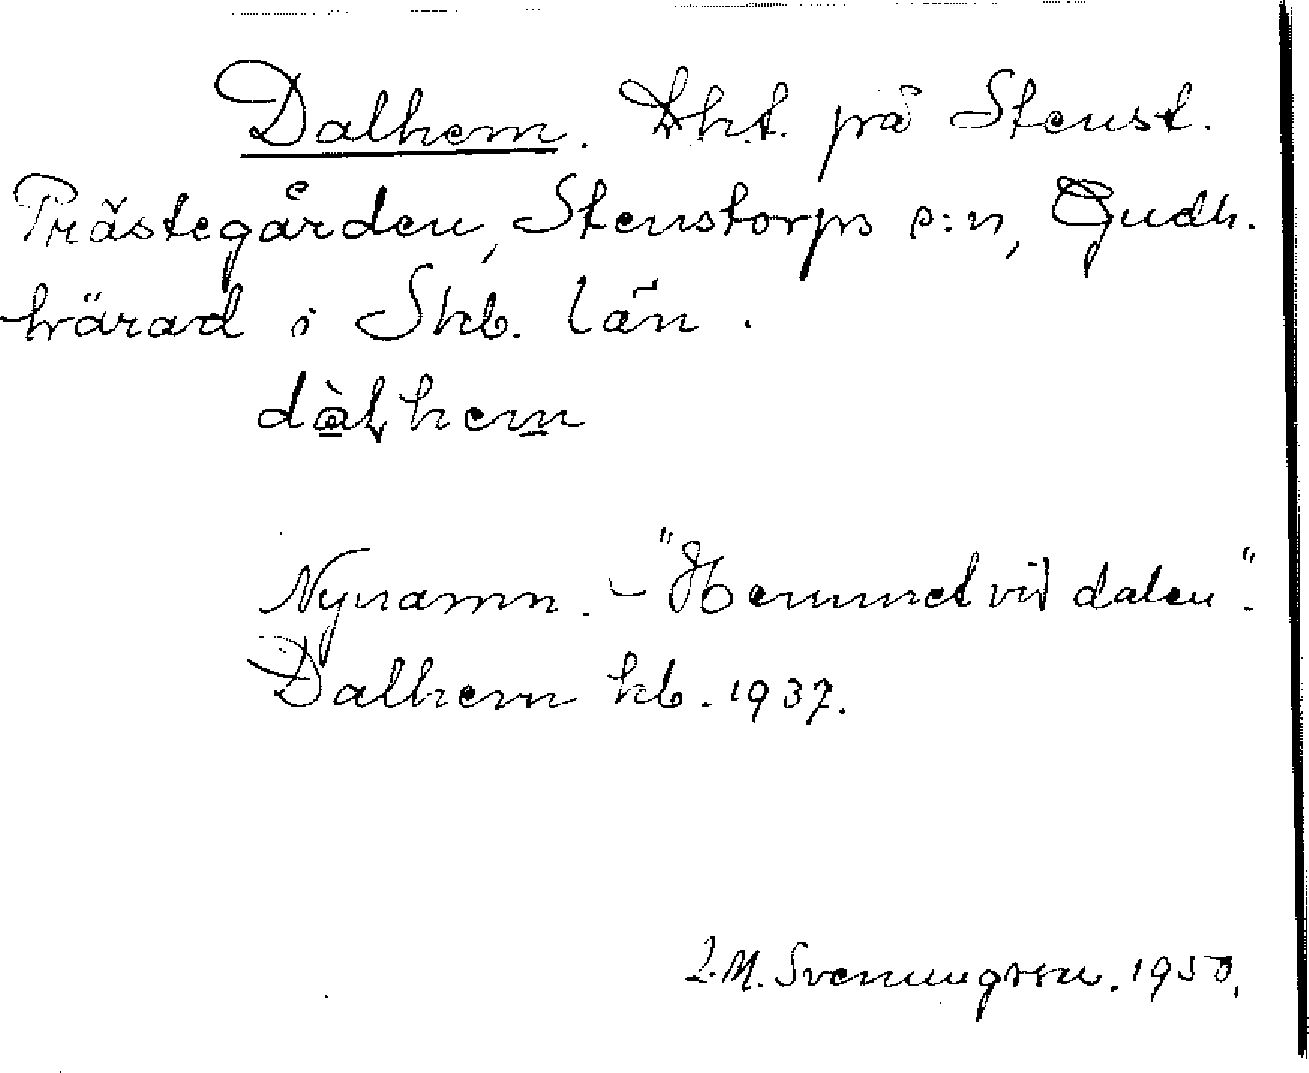 Dalhem. Lht. på Stenst.
Prästegården, Stenstorps s:n, Gudh.
härad i Skb. län.
dàlhem
Nynamn. – "Hemmet vid dalen".
Dalhem kb. 1937.
L.M. Svenungsson. 1950.